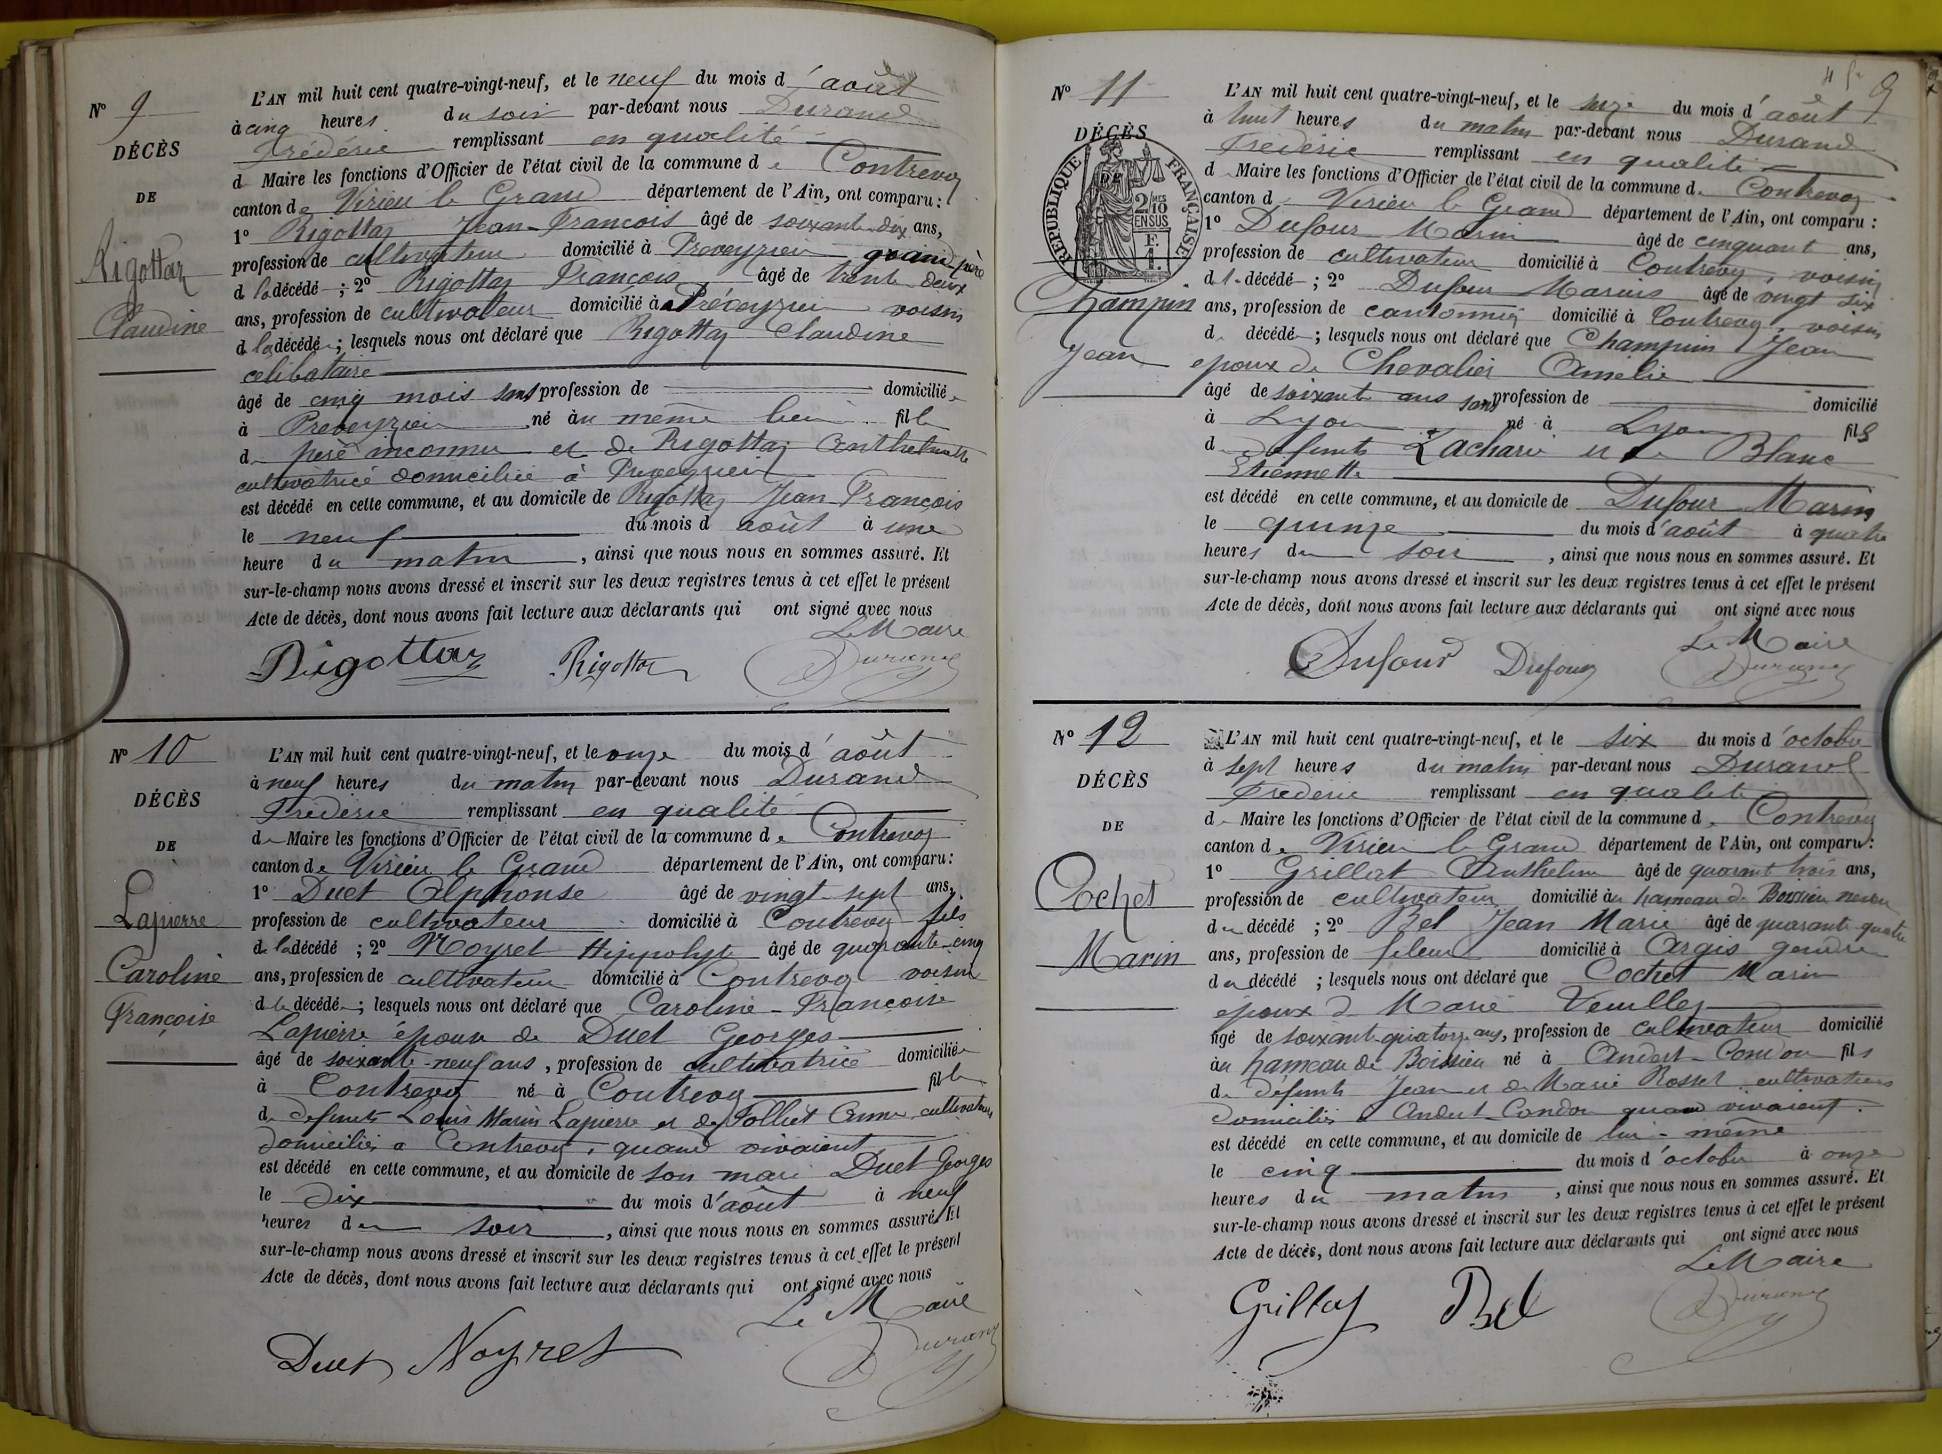 N° 9
DÉCÈS
DE
Rigottaz
Claudine
L'AN mil huit cent quatre-vingt-neuf, et le neuf du mois d'août
à cinq heures du soir par-devant nous Durand
Frédéric remplissant en qualité
de Maire les fonctions d'Officier de l'état civil de la commune de Contrevoz
canton de Virieu le Grand département de l'Ain, ont comparu :
1° Rigottaz Jean-François âgé de soixante-dix ans,
profession de cultivateur domicilié à Preveyzieu grand père
de la décédée ; 2° Rigottaz François âgé de trente deux
ans, profession de cultivateur domicilié à Préveyzieu voisin
de la décédée ; lesquels nous ont déclaré que Rigottaz Claudine
célibataire
âgé de cinq mois sans profession de domiciliée
à Preveyzieu né au même lieu fille
de père inconnu et de Rigottaz Anthelmette
cultivatrice domiciliée à Preveyzieu
est décédé en cette commune, et au domicile de Rigottaz Jean François
le neuf du mois d août à une
heure du matin, ainsi que nous nous en sommes assuré. Et
sur-le-champ nous avons dressé et inscrit sur les deux registres tenus à cet effet le présent
Acte de décès, dont nous avons fait lecture aux déclarants qui ont signé avec nous
Le Maire
Rigottaz Rigottaz Durand
N° 10
DÉCÈS
DE
Lapierre
Caroline
Françoise
L'AN mil huit cent quatre-vingt-neuf, et le onze du mois d'août
à neuf heures du matin par-devant nous Durand
Frédéric remplissant en qualité
de Maire les fonctions d'Officier de l'état civil de la commune de Contrevoz
canton de Virieu le Grand département de l'Ain, ont comparu :
1° Duet Alphonse âgé de vingt-sept ans,
profession de cultivateur domicilié à Contrevoz fils
de la décédé ; 2° Noyret Hippolyte âgé de quarante-cinq
ans, profession de cultivateur domicilié à Contrevoz voisin
de la décédée ; lesquels nous ont déclaré que Caroline-Françoise
Lapierre épouse de Duet Georges
âgé de soixante-neuf ans, profession de cultivatrice domiciliée
à Contrevoz né à Contrevoz fille
de défunts Louis Marin Lapierre et de Folliet Anne cultivateurs
domiciliés à Contrevoz, quand vivaient
est décédé en cette commune, et au domicile de son mari Duet Georges
le dix du mois d'août à neuf
heures du soir, ainsi que nous nous en sommes assuré. Et
sur-le-champ nous avons dressé et inscrit sur les deux registres tenus à cet effet le présent
Acte de décès, dont nous avons fait lecture aux déclarants qui ont signé avec nous
Le Maire
Duet Noyret Durand
9
N° 11
DÉCÈS
DE
RÉPUBLIQUE FRANÇAISE
2/10 EN SUS
F. 1.
Champin
Jean
L'AN mil huit cent quatre-vingt-neuf, et le seize du mois d'août
à huit heures du matin par-devant nous Durand
Frédéric remplissant en qualité
de Maire les fonctions d'Officier de l'état civil de la commune de Contrevoz
canton de Virieu le Grand département de l'Ain, ont comparu :
1° Dufour Marin âgé de cinquante ans,
profession de cultivateur domicilié à Contrevoz, voisin
du décédé ; 2° Dufour Marius âgé de vingt six
ans, profession de cantonnier domicilié à Contrevoz, voisin
du décédé ; lesquels nous ont déclaré que Champin Jean
époux de Chevalier Amélie
âgé de soixante ans sans profession de domicilié
à Lyon né à Lyon fils
de défunts Zacharie et de Blanc
Etiennette
est décédé en cette commune, et au domicile de Dufour Marin
le quinze du mois d'août à quatre
heures du soir, ainsi que nous nous en sommes assuré. Et
sur-le-champ nous avons dressé et inscrit sur les deux registres tenus à cet effet le présent
Acte de décès, dont nous avons fait lecture aux déclarants qui ont signé avec nous
Le Maire
Dufour Dufour Durand
N° 12
DÉCÈS
DE
Cochet
Marin
L'AN mil huit cent quatre-vingt-neuf, et le six du mois d'octobre
à sept heures du matin par-devant nous Durand
Frédéric remplissant en qualité
de Maire les fonctions d'Officier de l'état civil de la commune de Contrevoz
canton de Virieu le Grand département de l'Ain, ont comparu :
1° Grillat Anthelme âgé de quarante trois ans,
profession de cultivateur domicilié au hameau de Boissieu neveu
du décédé ; 2° Bel Jean Marie âgé de quarante-quatre
ans, profession de fileur domicilié à Argis gendre
du décédé ; lesquels nous ont déclaré que Cochet Marin
époux de Marie Veuillez
âgé de soixante quatorze ans, profession de cultivateur domicilié
au hameau de Boissieu né à Andert-Condon fils
de défunts Jean et de Marie Rosset cultivateurs
domiciliés à Andert-Condon quand vivaient.
est décédé en cette commune, et au domicile de lui-même
le cinq du mois d'octobre à onze
heures du matin, ainsi que nous nous en sommes assuré. Et
sur-le-champ nous avons dressé et inscrit sur les deux registres tenus à cet effet le présent
Acte de décès, dont nous avons fait lecture aux déclarants qui ont signé avec nous
Le Maire
Grillat Bel Durand